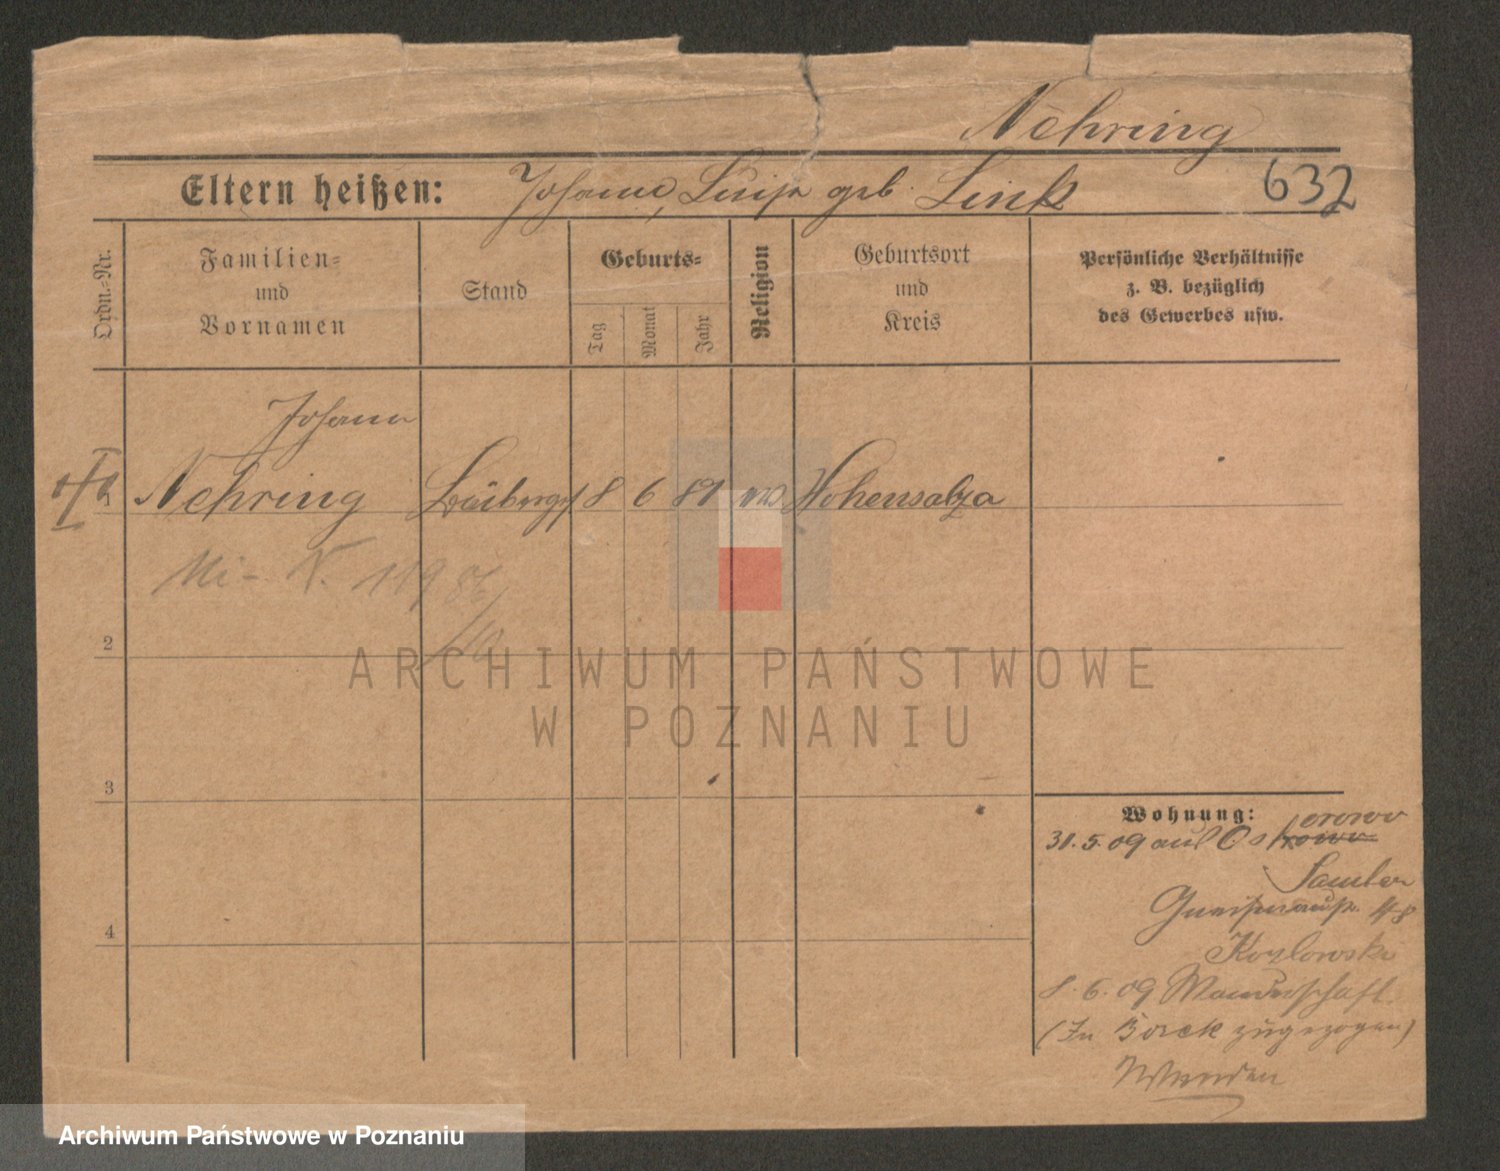 Nehring
Eltern heißen: Johann, Luise geb. Link 632
Ordn.-Nr.
Familien- und Vornamen
Stand
Geburts-
Tag
Monat
Jahr
Religion
Geburtsort und Kreis
Persönliche Verhältnisse
z. B. bezüglich
des Gewerbes usw.
Johann
Nehring 8 6 89 Hohensalza
2
3
4
Wohnung:
31.5.09 aus Ostrowo
Gneisenaustr.
Kozlowski
8.6.09 Wanderschaft
(In zugezogen)
ARCHIWUM PAŃSTWOWE
W POZNANIU
Archiwum Państwowe w Poznaniu